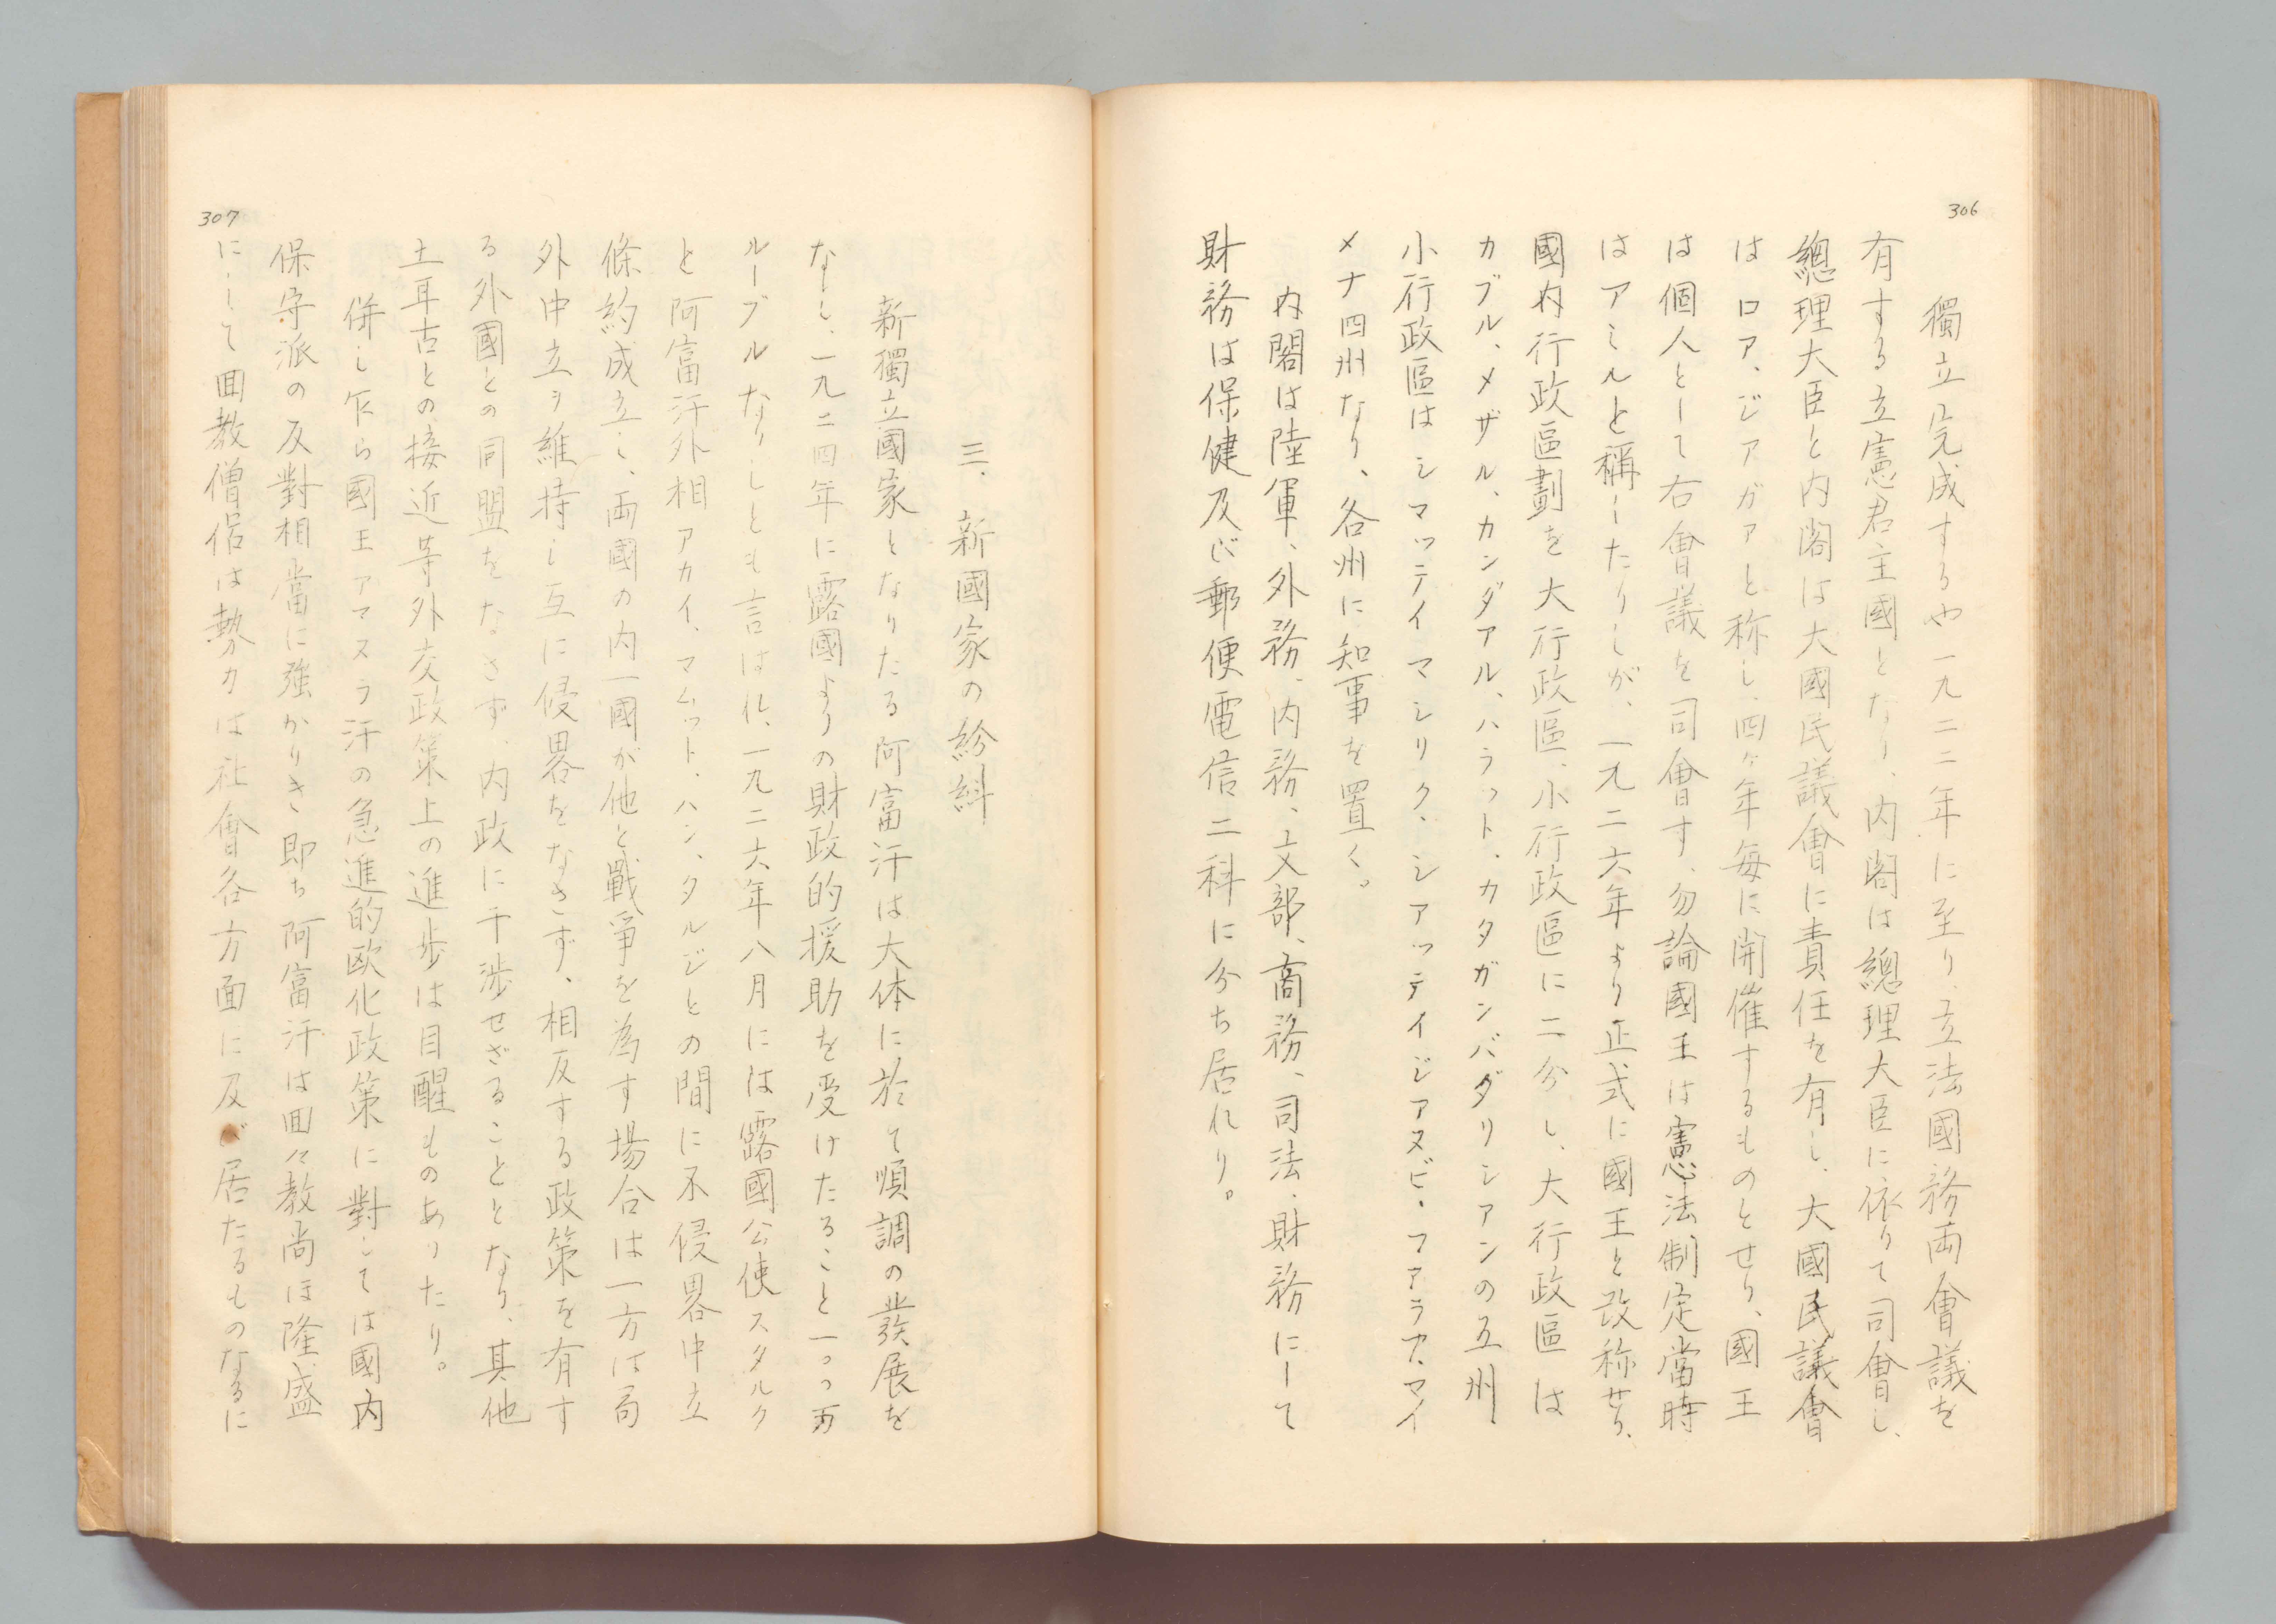 306
獨立完成するや一九二二年に至り、立法國務両會議を
有する立憲君主國となり、内閣は總理大臣に依りて司會し、
總理大臣と内閣は大國民議會に責任を有し、大國民議會
はロア、ジアガアと称し、四ヶ年毎に開催するものとせり、國王
は個人として右會議を司會す、勿論國王は憲法制定當時
はアミルと稱したりしが、一九二六年より正式に國王と改称せり、
國内行政區劃を大行政區、小行政區に二分し、大行政區は
カブル、メザル、カンダアル、ハラット、カタガンバダリシアンの五州
小行政區はシマッテイマシリク、シアッテイジアヌビ、フアラア、マイ
メナ四州なり、各州に知事を置く。
内閣は陸軍、外務、内務、文部、商務、司法、財務にして
財務は保健及び郵便電信二科に分ち居れり。
三、新國家の紛糾
新獨立國家となりたる阿富汗は大体に於て順調の發展を
なし、一九二四年に露國よりの財政的援助を受けたること一〇〇万
ルーブルなりしとも言はれ、一九二六年八月には露國公使スタルク
と阿富汗外相アカイ、マムット、ハン、タルジとの間に不侵畧中立
條約成立し、両國の内一國が他と戰爭を為す場合は一方は局
外中立ヲ維持し互に侵畧をなさず、相反する政策を有す
る外國との同盟をなさず、内政に干渉せざることとなり、其他
土耳古との接近等外交政策上の進歩は目醒ものありたり。
併し乍ら國王アマスラ汗の急進的欧化政策に對しては國内
保守派の反對相當に強かりき即ち阿富汗は回々教尚ほ隆盛
にして回教僧侶は勢力は社會各方面に及び居たるものなるに
307